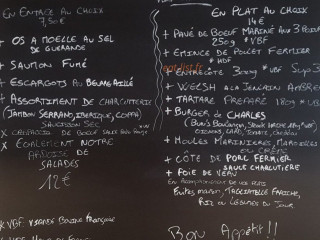 EN ENTREE AU CHOIX
7,50€
+ OS A MOELLE AU SEL
DE GUERANDE
+ SAUMON FUMÉ
+ ESCARGOTS AU BEURRE AILLÉ
+ ASSORTIMENT DE CHARCUTERIE
(JAMBON SERRANO, IBERIQUE, COPPA)
SAUCISSON SEC
X CARPACCIO DE BOEUF
X EGALEMENT NOTRE
ARDOISE DE
SALADES
12€
X VBF: VIANDE BOVINE FRANÇAISE
EN PLAT AU CHOIX
14€
+ PAVÉ DE BOEUF MARINÉ AUX 3 POIVRES
250g *VBF
+ EMINCE DE POULET FERMIER
*HDF
+ ENTRECÔTE 300g *VBF SUP 3€
+ WELSH A LA JENLAIN AMBRÉE
+ TARTARE PREPARÉ 180g *VBF
+ BURGER de CHARLES
+ MOULES MARINIERES, MAROILLES
OU CRÈME
+ CÔTE DE PORC FERMIER
SAUCE CHARCUTIÈRE
+ FOIE DE VEAU
EN ACCOMPAGNEMENT DE VOS PLATS
FRITES MAISON, TAGLIATELLE FRAÎCHE,
RIZ OU LÉGUMES DU JOUR
BON APPÉTIT!!